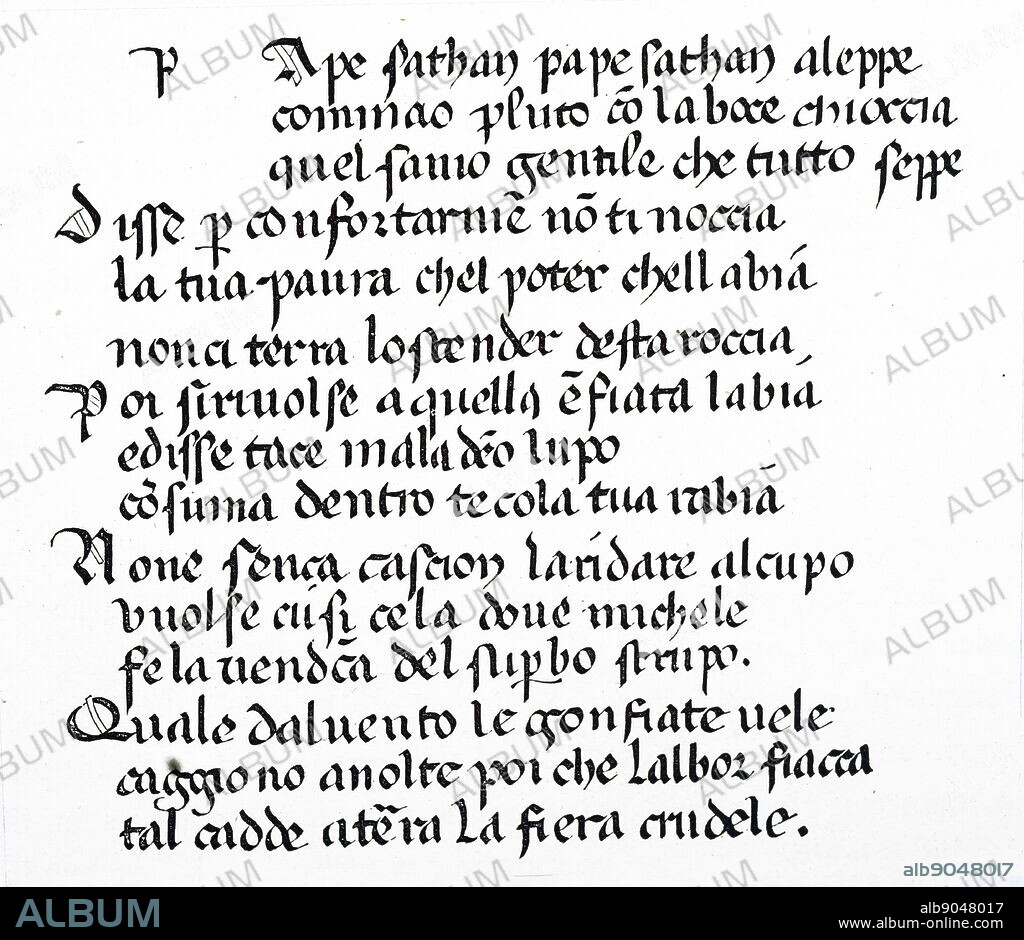 P Ape sathan pape sathan aleppe
cominao pluto cō la boce chioccia
quel sauio gentile che tutto seppe
Disse p confortarmē nō ti noccia
la tua paura chel poter chell abiā
non ci terra lo scender desta roccia
Poi si riuolse a quella ēfiata labia
e disse tace maladēo lupo
cōsuma dentro te cola tua rabiā
None senca cascion lar idare al cupo
vuolse cusi ce la doue michele
fe la uendcā del supbo strupo.
Quale dal uento le gonfiate uele
caggiono anolte poi che lalbor fiacca
tal cadde atēra la fiera crudele.
ALBUM
alb9048017
ALBUM
alb9048017
www.album-online.com